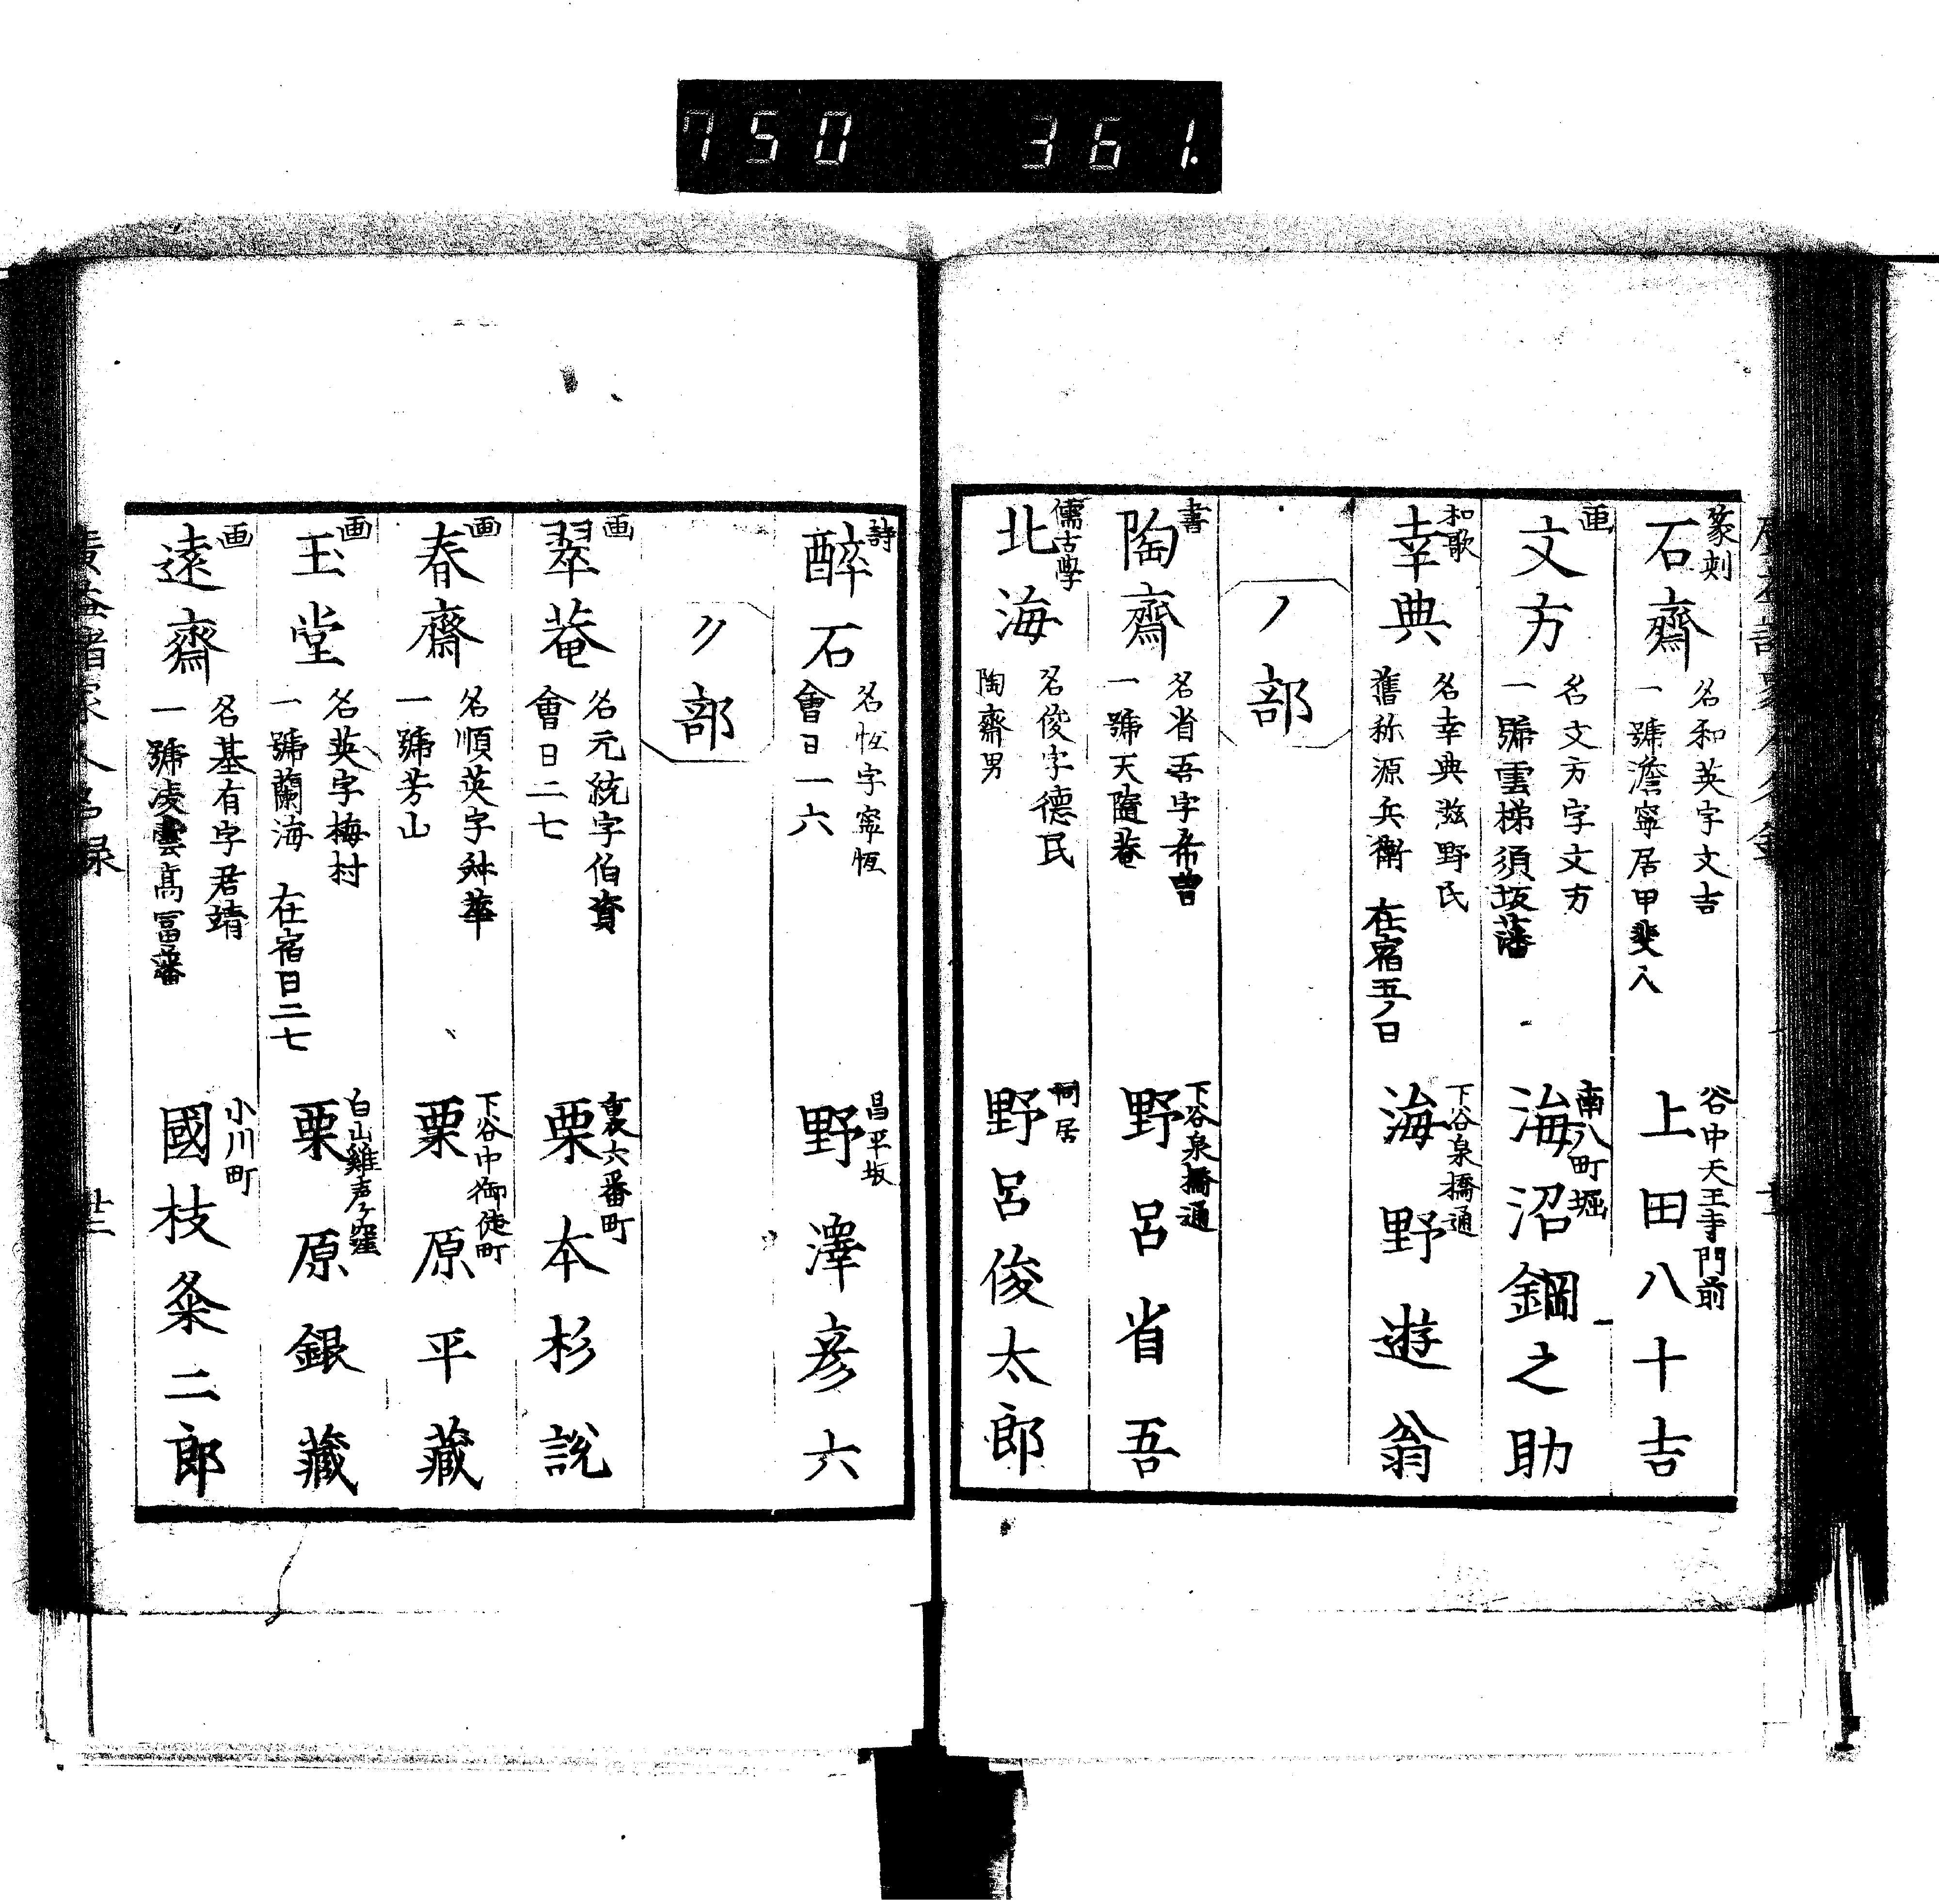 750 361.
篆刻
石齋
名和英字文吉
一號澹寧居甲斐人
谷中天王寺門前
上田八十吉
画
文方
名文方字文方
一號雲梯須坂藩
南八町堀
海沼鋼之助
和歌
幸典
名幸典滋野氏
舊称源兵衛 在宿五ノ日
下谷泉橋通
海野遊翁
ノ部
書
陶齋
名省吾字希曽
一號天隨菴
下谷泉橋通
野呂省吾
儒古學
北海
名俊字德民
陶齋男
同居
野呂俊太郎
詩
醉石
名恆字寧恆
會日一六
昌平坂
野澤彦六
ク部
画
翠菴
名元統字伯資
會日二七
裏六番町
栗本杉說
画
春齋
名順英字舜華
一號芳山
下谷中御徒町
栗原平藏
画
玉堂
名英字梅村
一號蘭海 在宿日二七
白山雞声ヶ窪
栗原銀藏
画
遠齋
名基有字君靖
一號凌雲高冨藩
小川町
國枝粂二郎
廣益諸家人名録
廿二